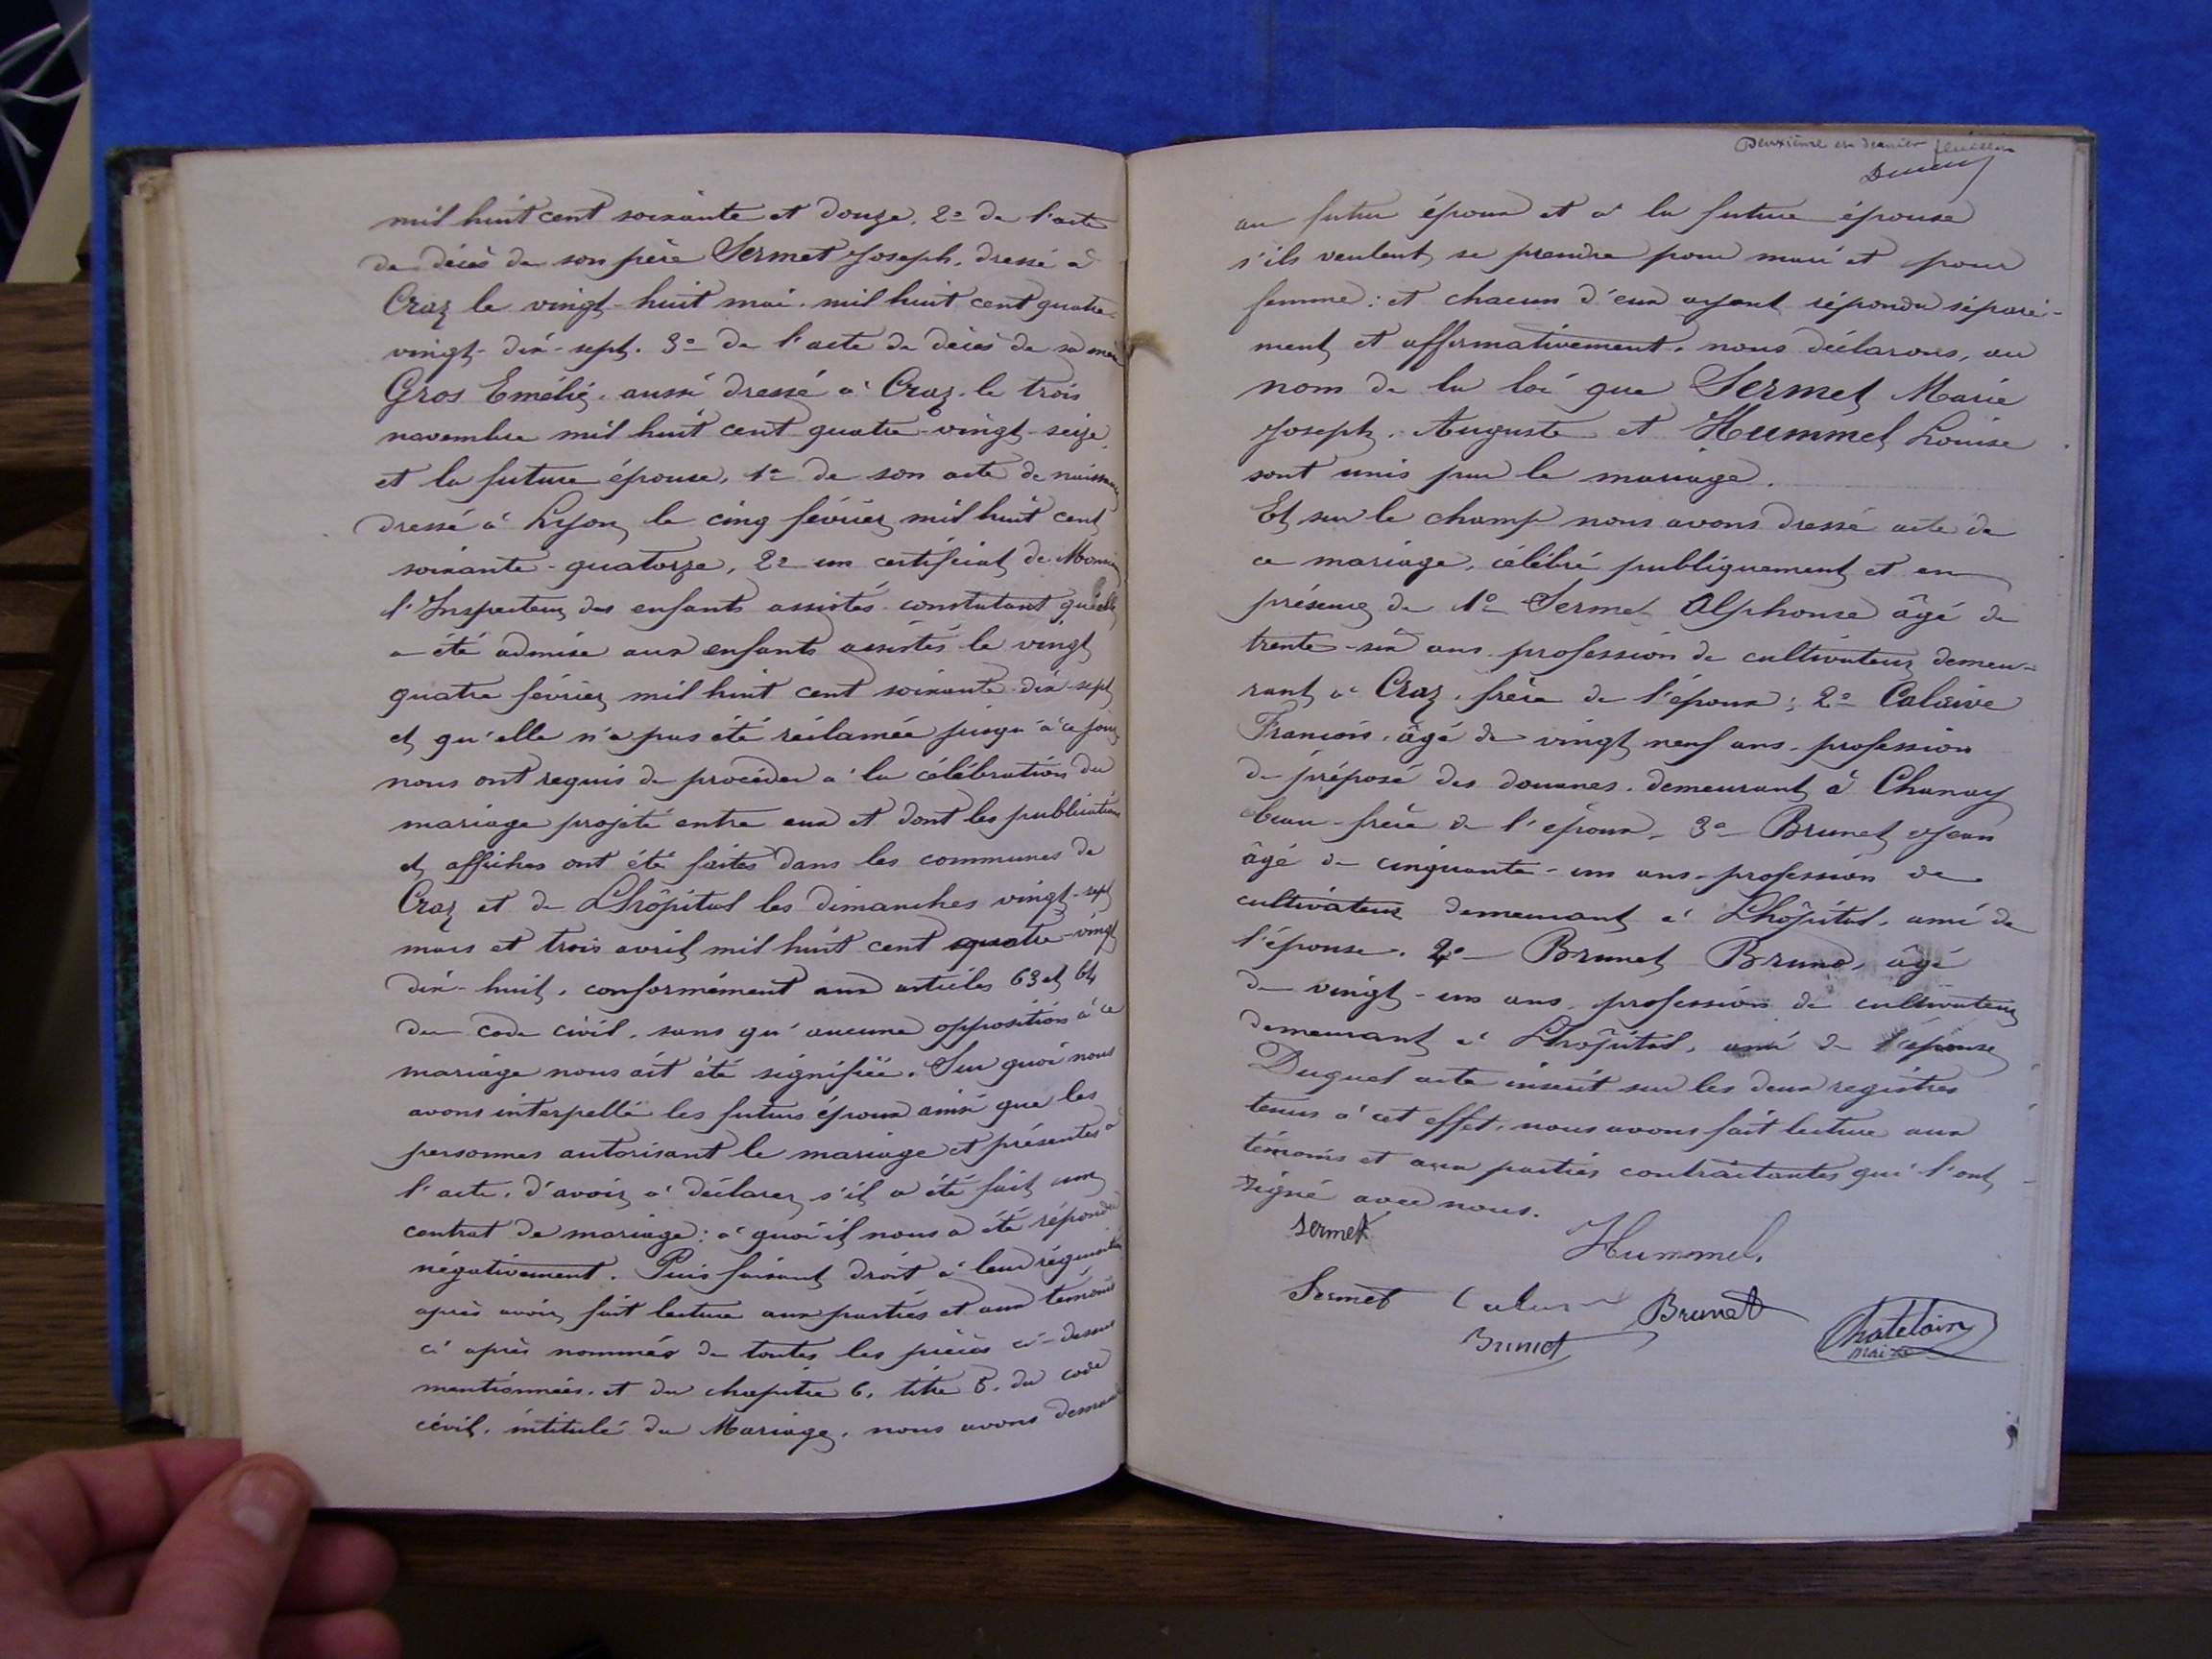 mil huit cent soixante et douze, 2º de l'acte
de décès de son père Sermet Joseph, dressé à
Craz le vingt-huit mai mil huit cent quatre-
vingt-dix-sept. 3º de l'acte de décès de sa mère
Gros Emélie, aussi dressé à Craz le trois
novembre mil huit cent quatre-vingt-seize,
et la future épouse, 1º de son acte de naissance
dressé à Lyon le cinq février mil huit cent
soixante-quatorze, 2º un certificat de Monsieur
l'Inspecteur des enfants assistés constatant qu'elle
a été admise aux enfants assistés le vingt
quatre février mil huit cent soixante-dix-sept
et qu'elle n'a pas été réclamée jusqu'à ce jour
nous ont requis de procéder à la célébration du
mariage projeté entre eux et dont les publications
et affiches ont été faites dans les communes de
Craz et de Lhôpital les dimanches vingt-sept
mars et trois avril mil huit cent quatre-vingt
dix-huit, conformément aux articles 63 et 64
du code civil, sans qu'aucune opposition à ce
mariage nous ait été signifiée. Sur quoi nous
avons interpellé les futurs époux ainsi que les
personnes autorisant le mariage et présentes à
l'acte, d'avoir à déclarer s'il a été fait un
contrat de mariage: à quoi il nous a été répondu
négativement. Puis faisant droit à leur réquisition
après avoir fait lecture aux parties et aux témoins
ci après nommés de toutes les pièces ci-dessus
mentionnées, et du chapitre 6, titre 5, du code
civil, intitulé du Mariage, nous avons demandé
Deuxième et dernier feuillet
au futur époux et à la future épouse
s'ils veulent se prendre pour mari et pour
femme: et chacun d'eux ayant répondu séparé-
ment et affirmativement, nous déclarons, au
nom de la loi que Sermet Marie
Joseph Auguste et Hummel Louise
sont unis par le mariage.
Et sur le champ nous avons dressé acte de
ce mariage, célébré publiquement et en
présence de 1º Sermet Alphonse âgé de
trente-six ans profession de cultivateur demeu-
rant à Craz, frère de l'époux; 2º Calaive
François, âgé de vingt neuf ans, profession
de préposé des douanes, demeurant à Chanay
beau-frère de l'époux, 3º Brunet Jean
âgé de cinquante-un ans, profession de
cultivateur demeurant à Lhôpital, ami de
l'épouse. 4º Brunet Bruno, âgé
de vingt-un ans, profession de cultivateur
demeurant à Lhôpital, ami de l'épouse
Duquel acte inscrit sur les deux registres
tenus à cet effet, nous avons fait lecture aux
témoins et aux parties contractantes qui l'ont
signé avec nous.
Sermet Hummel
Sermet Brunet
Brunet Chatelain
maire